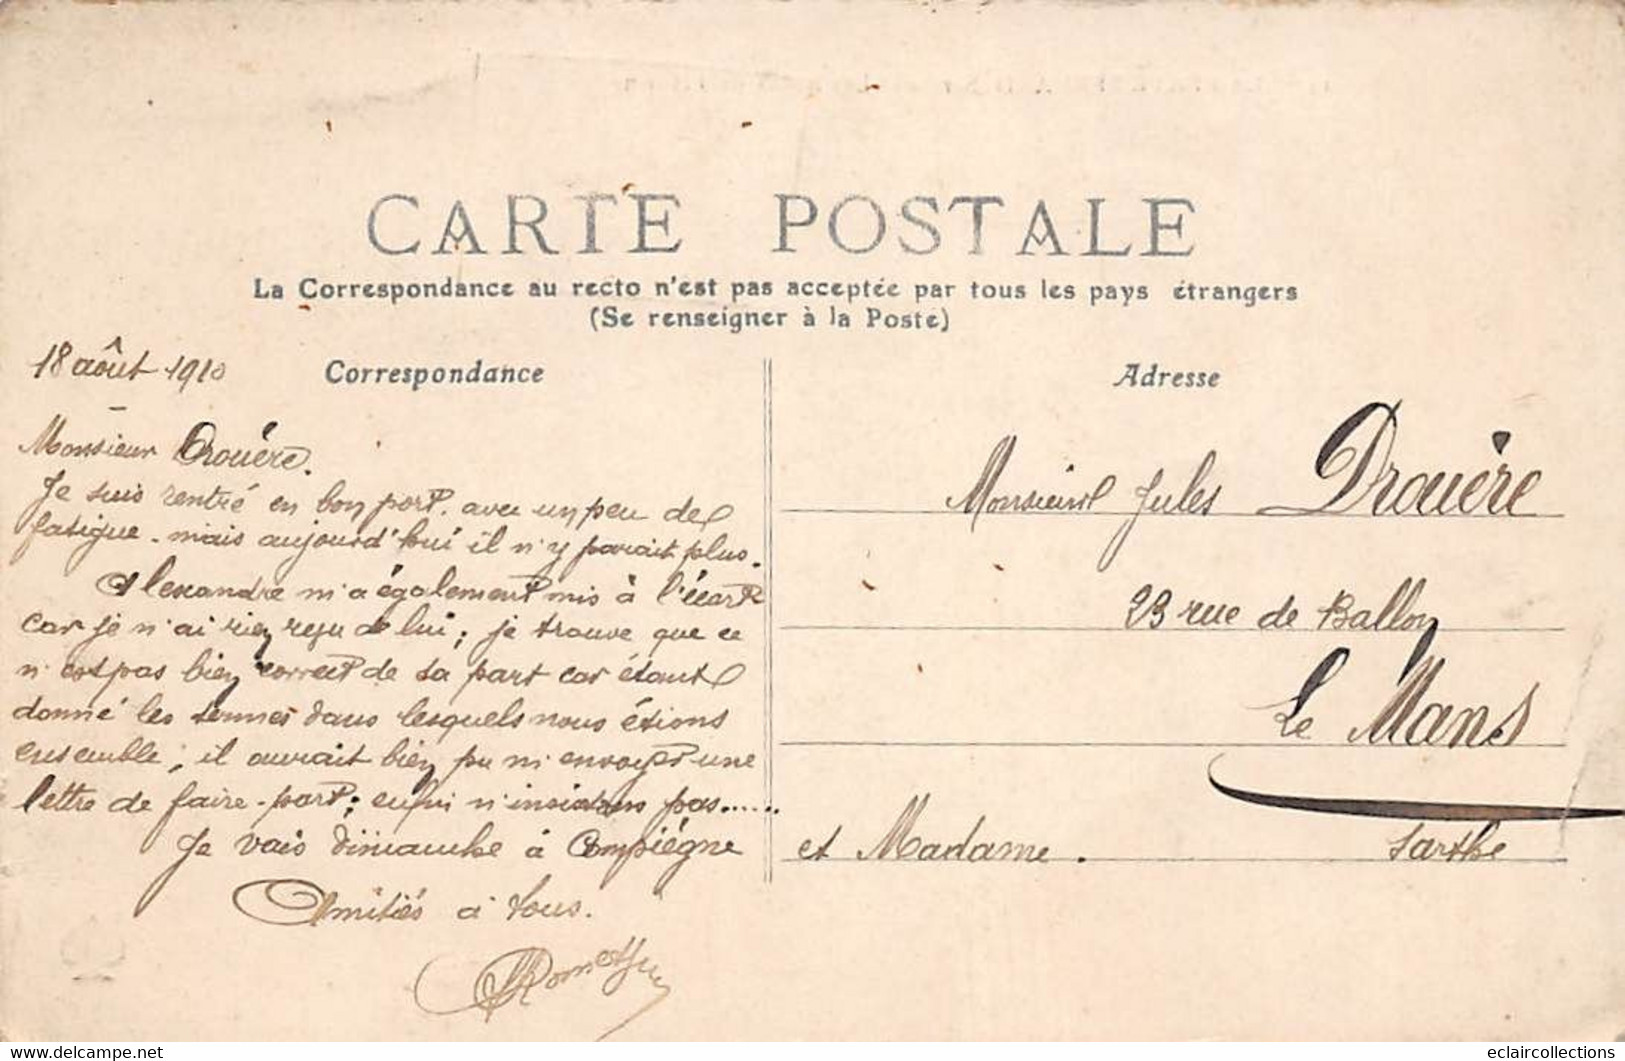 CARTE POSTALE
La Correspondance au recto n'est pas acceptée par tous les pays étrangers
(Se renseigner à la Poste)
18 août 1910
Correspondance
Monsieur Drouère.
Je suis rentré en bon port. avec un peu de
fatigue. mais aujourd'hui il n'y parait plus.
Alexandre m'a également mis à l'écart
car je n'ai rien reçu de lui; je trouve que ce
n'est pas bien correct de sa part car étant
donné les termes dans lesquels nous étions
ensemble; il aurait bien pu m'envoyer une
lettre de faire-part; enfin n'insistons pas......
Je vais dimanche à Compiègne
Amitiés à tous.
Adresse
Monsieur Jules Drouère
23 rue de Ballon
Le Mans
et Madame. Sarthe
eclaircollections